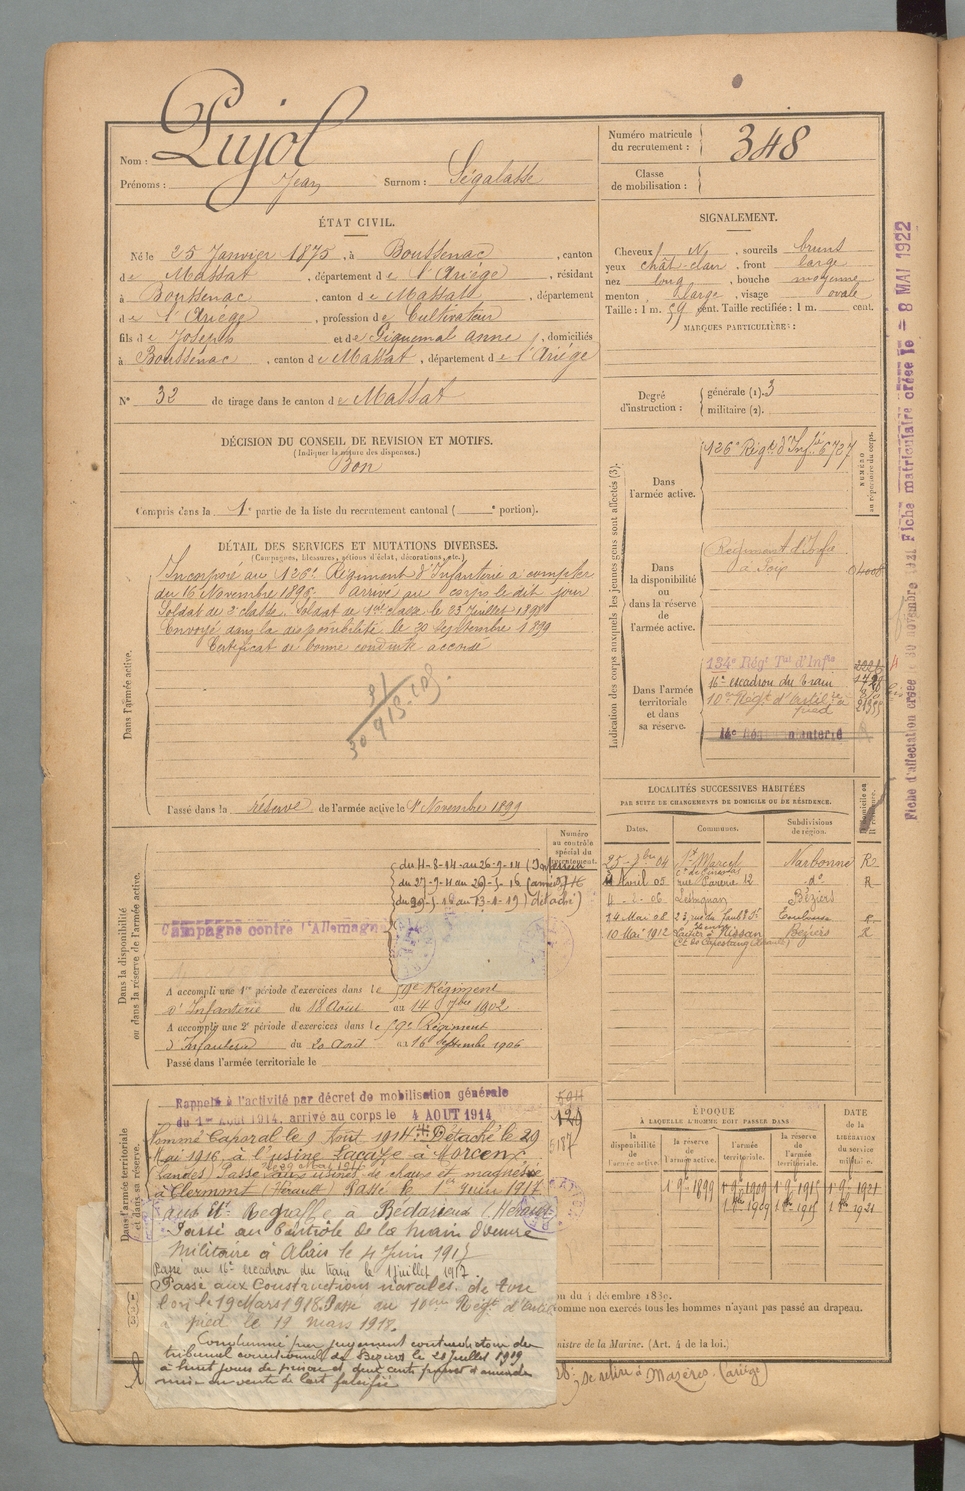 Nom : Pujol
Prénoms : Jean Surnom : Ségalasse
Numéro matricule du recrutement : 348
Classe de mobilisation :
ÉTAT CIVIL.
Né le 25 Janvier 1875, à Boussenac, canton
de Massat, département de l'Ariège, résidant
à Boussenac, canton de Massat, département
de l'Ariège, profession de Cultivateur
fils de Joseph et de Piquemal Anne, domiciliés
à Boussenac, canton de Massat, département de l'Ariège
N° 32 de tirage dans le canton de Massat
SIGNALEMENT.
Cheveux N, sourcils bruns
yeux chât-clair, front large
nez long, bouche moyenne
menton large, visage ovale
Taille : 1 m. 59 cent. Taille rectifiée : 1 m. cent.
MARQUES PARTICULIÈRES :
Degré d'instruction : générale (1). 3
militaire (2).
DÉCISION DU CONSEIL DE REVISION ET MOTIFS.
(Indiquer la nature des dispenses.)
Bon
Compris dans la 1e partie de la liste du recrutement cantonal ( e portion).
DÉTAIL DES SERVICES ET MUTATIONS DIVERSES.
(Campagnes, blessures, actions d'éclat, décorations, etc.)
Dans l'armée active.
Incorporé au 126e Régiment d'Infanterie à compter
du 16 Novembre 1896. Arrivé au corps le dit jour
Soldat de 2e classe. Soldat de 1ère classe le 23 Juillet 1898
Envoyé dans la disponibilité le 30 Septembre 1899
Certificat de bonne conduite accordé
Passé dans la réserve de l'armée active le 1er Novembre 1899
Indication des corps auxquels les jeunes gens sont affectés (3).
NUMÉRO au répertoire du corps.
Dans l'armée active.
126e Régt d'Infie 6727
Dans la disponibilité ou dans la réserve de l'armée active.
Régiment d'Infie
à Foix
Dans l'armée territoriale et dans sa réserve.
134e Régt Tal d'Infie
16e escadron du train
10e Régt d'artillie à
pied
Fiche matriculaire créée le - 8 MAI 1922
Fiche d'affectation créée le 30 novembre 1921
LOCALITÉS SUCCESSIVES HABITÉES
PAR SUITE DE CHANGEMENTS DE DOMICILE OU DE RÉSIDENCE.
Dates. Communes. Subdivisions de région.
St Marcel Narbonne R
Avril 05 12 do R
06 Lézignan Béziers
24 Mai 08 Toulouse R
10 Mai 1912 Nissan Béziers R
Ct de Capestang (Hérault)
Numéro au contrôle spécial du recrutement.
Dans la disponibilité ou dans la réserve de l'armée active.
du 4-8-14 au 26-9-14 (Intérieur
Campagne contre l'Allemagne
A accompli une 1re période d'exercices dans le 59e Régiment
d'Infanterie du 18 Août au 14 7bre 1902
A accompli une 2e période d'exercices dans le 59e Régiment
d'Infanterie du 20 Août au 16 Septembre 1906
Passé dans l'armée territoriale le
Dans l'armée territoriale et dans sa réserve.
Rappelé à l'activité par décret de mobilisation générale
du 1er Août 1914, arrivé au corps le 4 AOUT 1914
Nommé Caporal le 9 Août 1914. Détaché le 29
Mai 1916 à l'usine Lacaze à Morcenx
(Landes) Passé aux usines de chaux et magnésie
à Clermont (Hérault) Passé le 1er Juin 1917
aux Ets Negraffe à Bédarieux (Hérault
Passé au Contrôle de la Main d'œuvre
Militaire à Alais le 4 Juin 1917
Passé au 16e escadron du train le 1 Juillet 1917.
Passé aux Constructions navales de Tou
lon le 19 Mars 1918. Passé au 10ème Régt d'artie
à pied le 19 mars 1918.
Condamné par jugement contradictoire du
tribunal correctionnel de Béziers le 28 Juillet 1909
à huit jours de prison et deux cents francs d'amende
mise en vente de lait falsifié
ÉPOQUE
À LAQUELLE L'HOMME DOIT PASSER DANS :
la disponibilité de l'armée active. la réserve de l'armée active. l'armée territoriale. la réserve de l'armée territoriale.
DATE de la LIBÉRATION du service militaire.
1 9bre 1899 1 9bre 1909 1 9bre 1915 1 9bre 1921
du 4 décembre 1839.
comme non exercés tous les hommes n'ayant pas passé au drapeau.
ministre de la Marine. (Art. 4 de la loi.)
se retire à Mazères (Ariège)